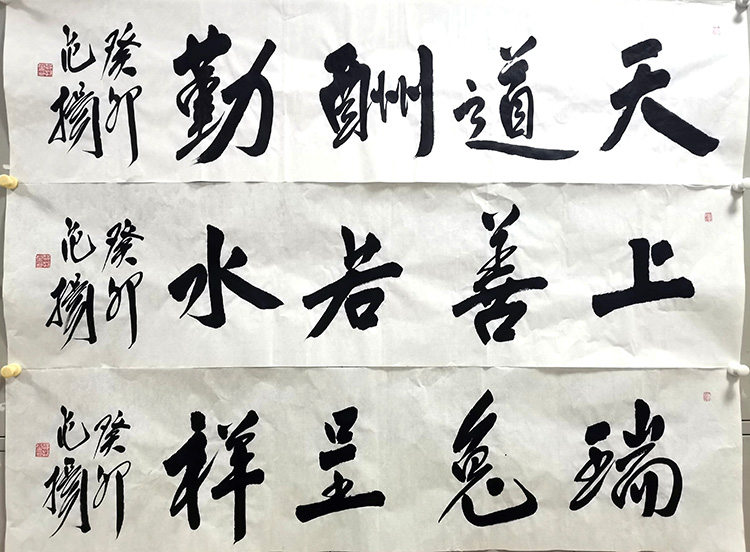 天道酬勤
癸卯
范揚
上善若水
癸卯
范揚
瑞兔呈祥
癸卯
范揚